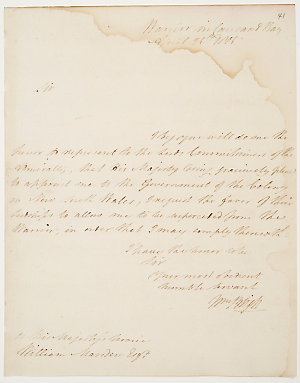 41
Warrior in Cawsand Bay
April 25th 1805
Sir
I beg you will do me the
honor to represent to the Lords Commissioners of the
Admiralty, that His Majesty being graciously pleased
to appoint me to the Government of the Colony
in New South Wales, I request the favor of their
Lordships to allow me to be superseded from the
Warrior, in order that I may comply therewith.
I have the honor to be
Sir
Your most obedient
humble Servant
Wm Bligh
William Marsden Esqr.